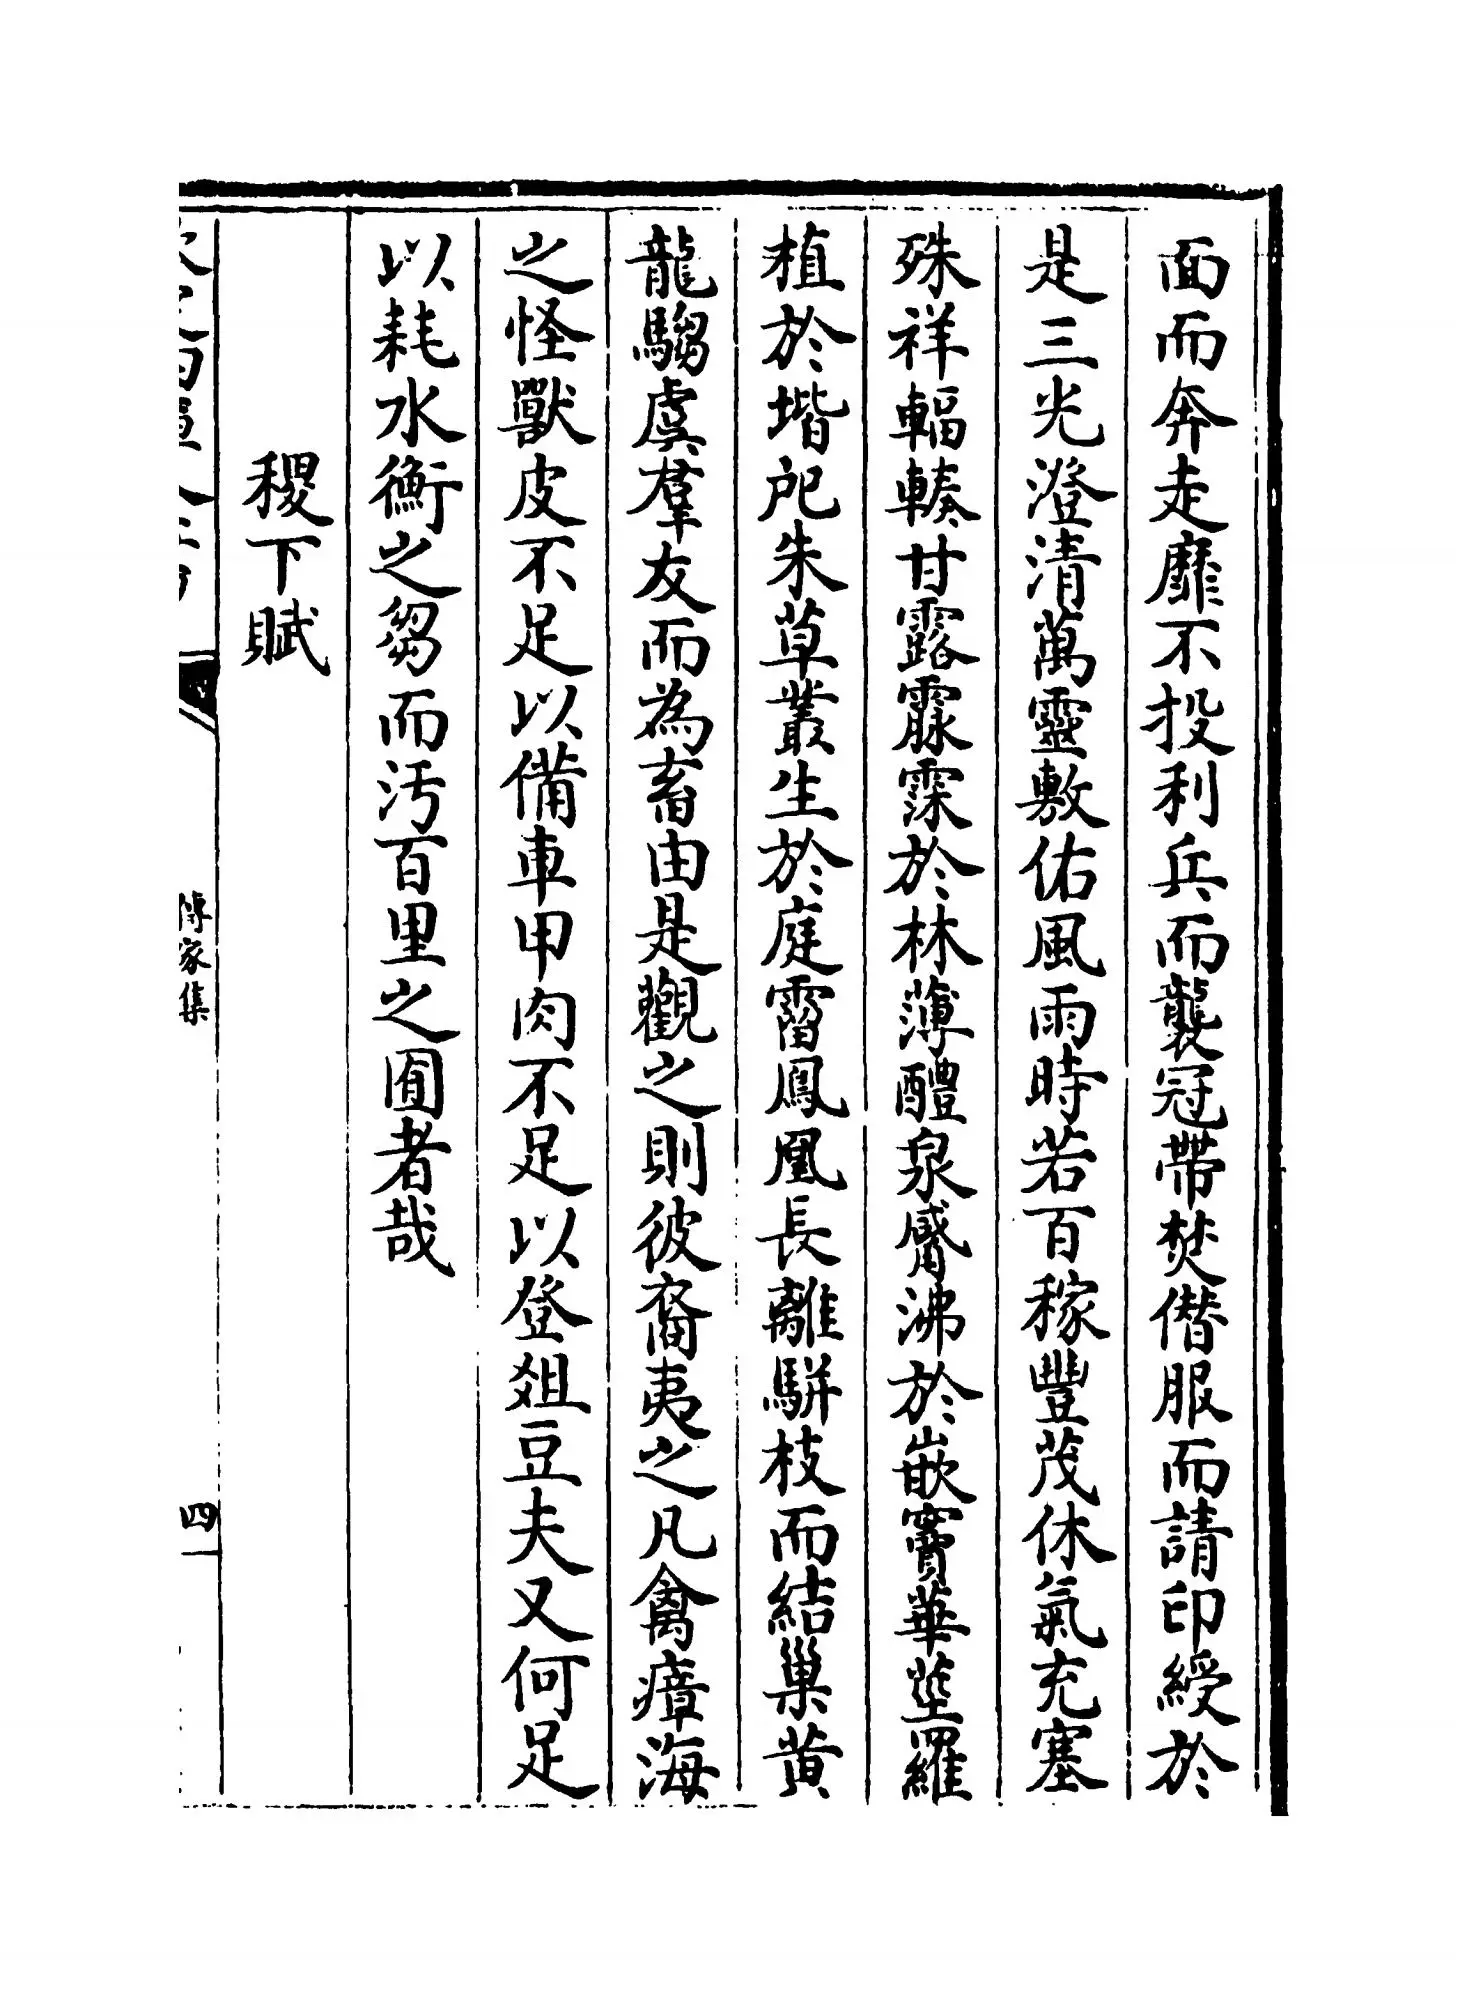 面而奔走靡不投利兵而襲冠帶焚僭服而請印綬於
是三光澄清萬靈敷佑風雨時若百稼豐茂休氣充塞
殊祥輻輳甘露霢霂於林薄醴泉觱沸於嵌竇華莖羅
植於堦戺朱草叢生於庭霤鳳凰長離駢枝而結巢黃
龍騶虞羣友而為畜由是觀之則彼裔夷之凡禽瘴海
之怪獸皮不足以備車甲肉不足以登爼豆夫又何足
以耗水衡之芻而汚百里之囿者哉
稷下賦
傳家集
四